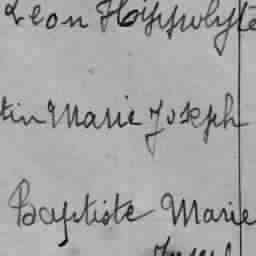 Léon Hippolyte
tin Marie Joseph
Baptiste Marie